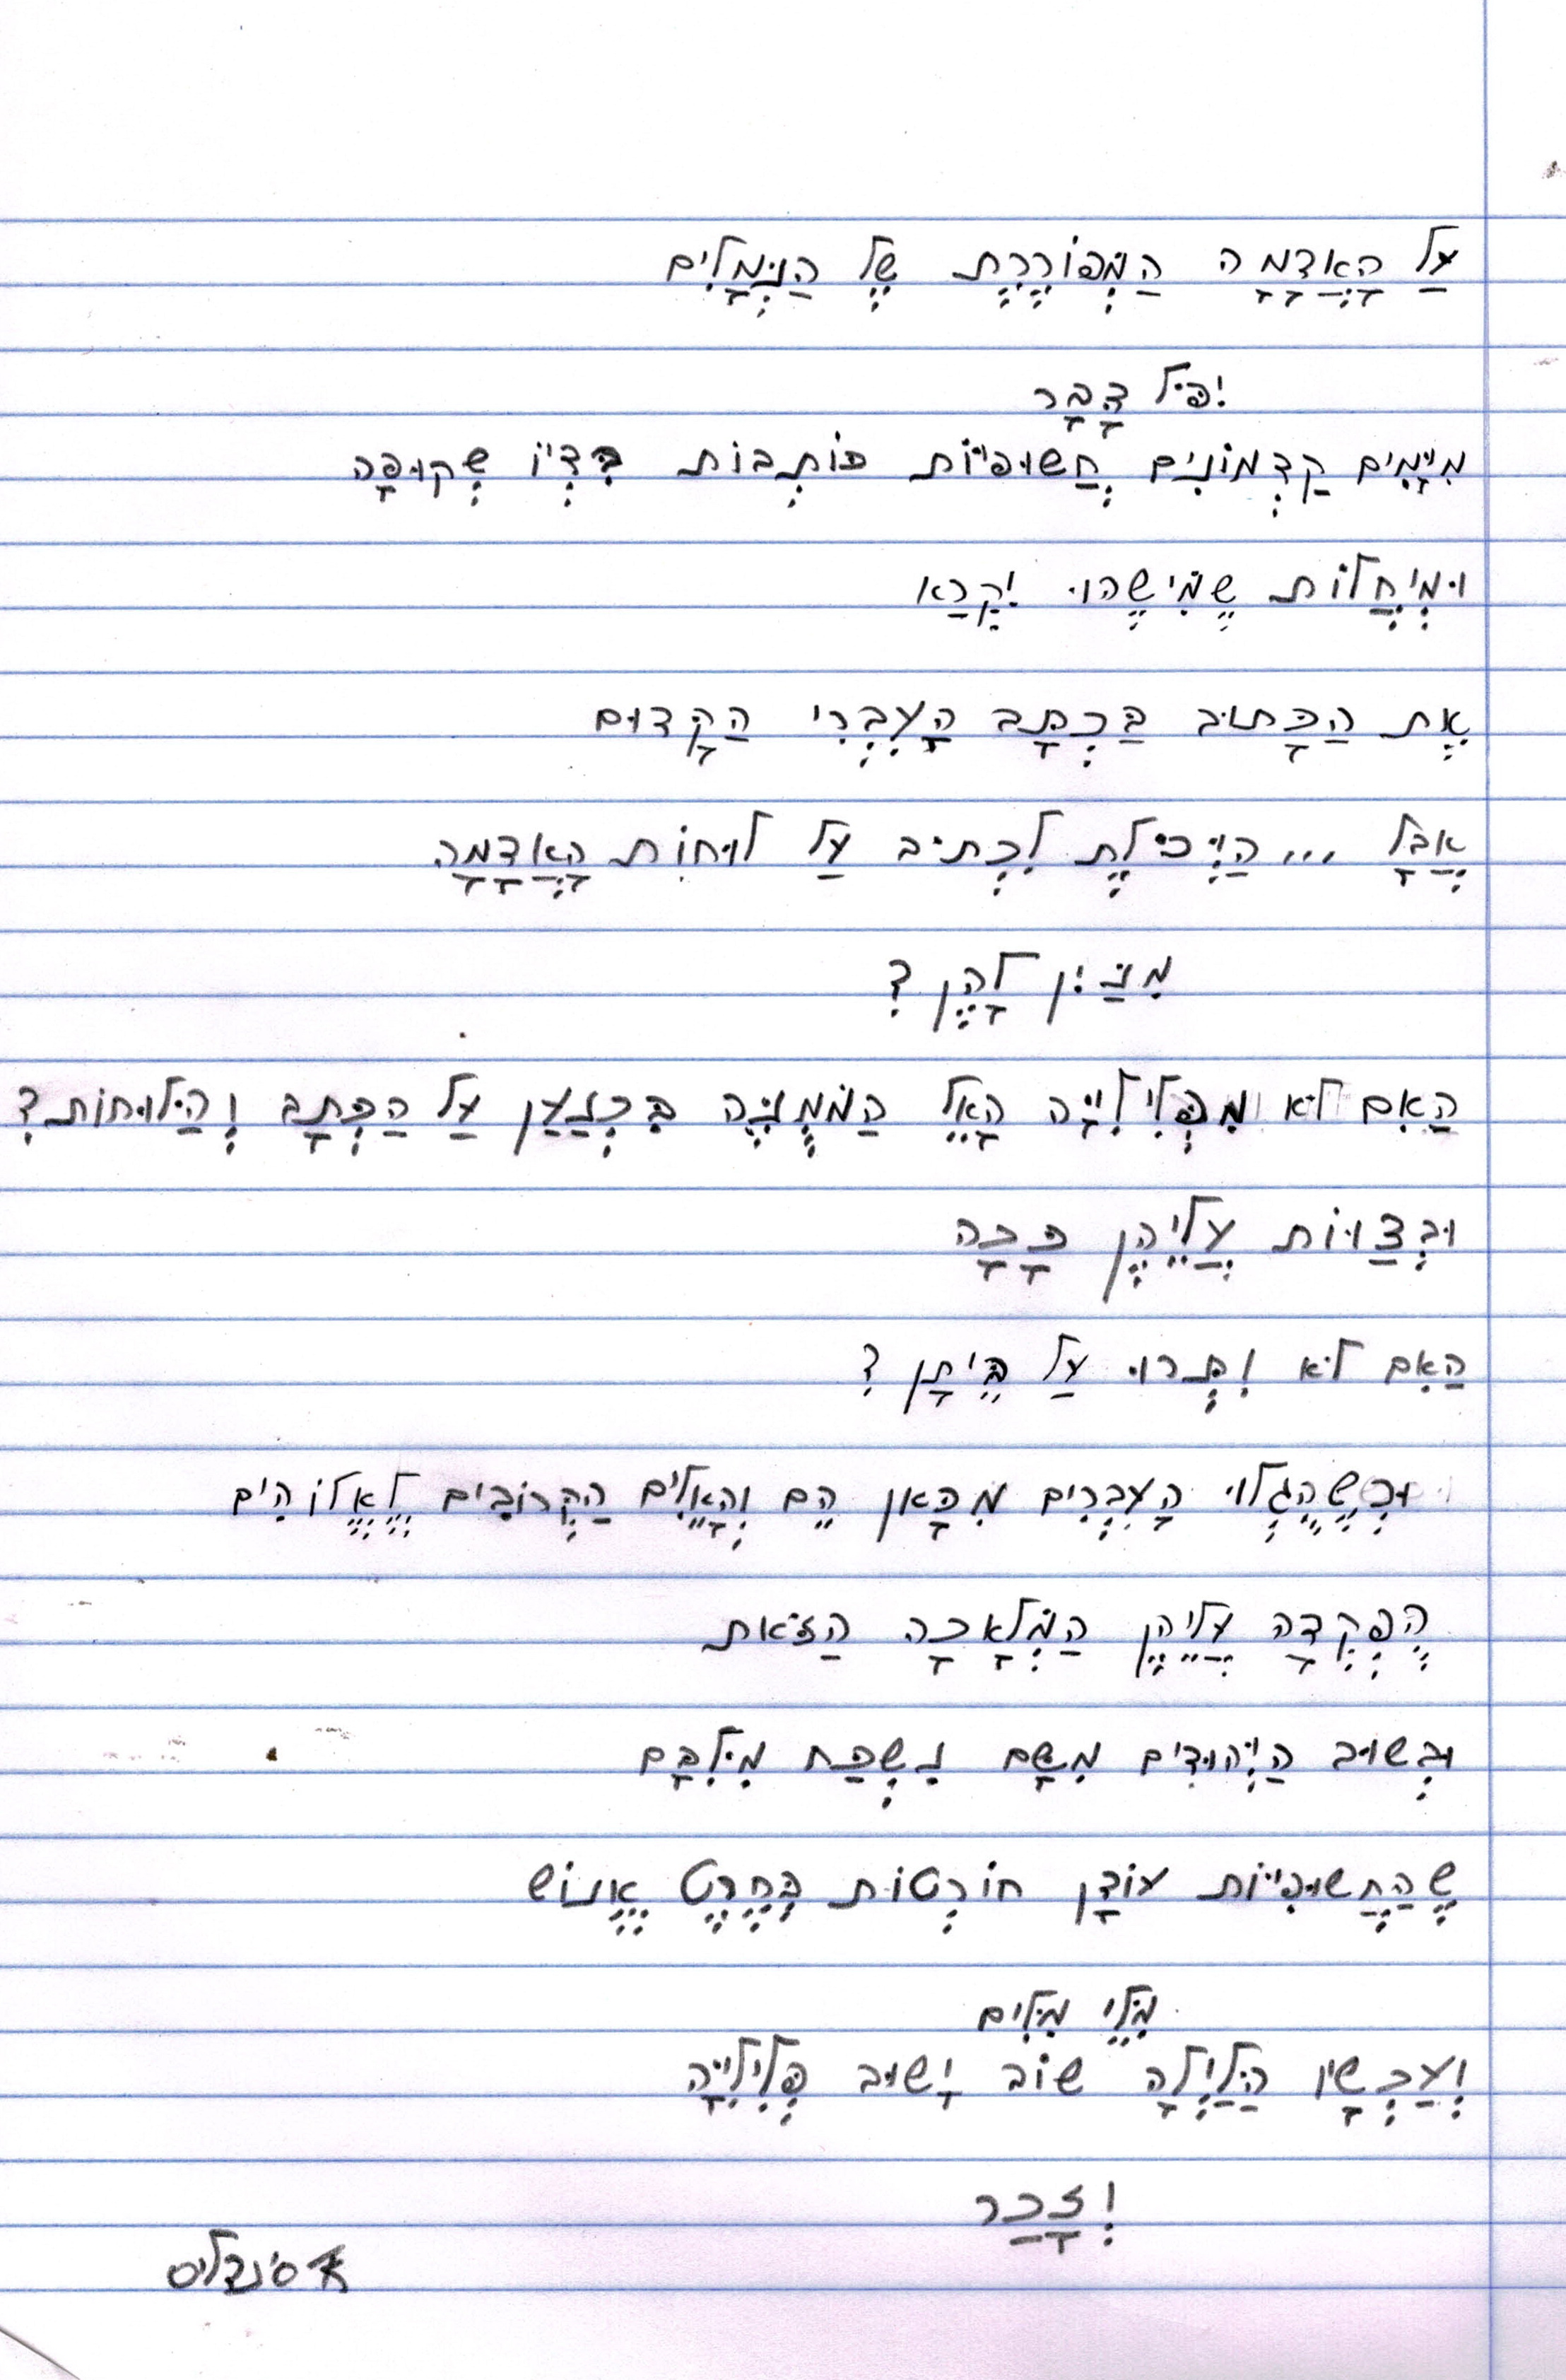 עַל הָאֲדָמָה הַמְּפוֹרֶרֶת שֶׁל הַנְּמָלִים
יִפֹּל דָּבָר
מִיָּמִים קַדְמוֹנִים חֲשׂוּפִיּוֹת כּוֹתְבוֹת בִּדְיוֹ שְׁקוּפָה
וּמְיַחֲלוֹת שֶׁמִּישֶׁהוּ יִקְרָא
אֶת הַכָּתוּב בַּכְּתָב הָעִבְרִי הַקָּדוּם
אֲבָל ... הַיְּכֹלֶת לִכְתֹּב עַל לוּחוֹת הָאֲדָמָה
מִנַּיִן לָהֶן ?
הַאִם לֹא מִפְּלִילִיָּה הָאֵל הַמְּמֻנֶּה בִּכְנַעַן עַל הַכְּתָב וְהַלּוּחוֹת ?
וּבְצַוּוֹת עֲלֵיהֶן כָּכָה
הַאִם לֹא וִתְּרוּ עַל בֵּיתָן ?
וּכְשֶׁהָגְלוּ הָעִבְרִים מִכָּאן הֵם וְהָאֵלִים הַקְּרוֹבִים לֶאֱלוֹהִים
הָפְקְדָה עֲלֵיהֶן הַמְּלָאכָה הַזֹּאת
וּבְשׁוּב הַיְּהוּדִים מִשָּׁם נִשְׁכַּח מִלִּבָּם
שֶׁהַחֲשׂוּפִיּוֹת עוֹדָן חוֹרְטוֹת בְּחֶרֶט אֱנוֹשׁ
מִלֵּי מִלִּים
וְעַכְשָׁו הַלַּיְלָה שׁוֹב יָשׁוּב פְּלִילִיָּה
וְזָכַר